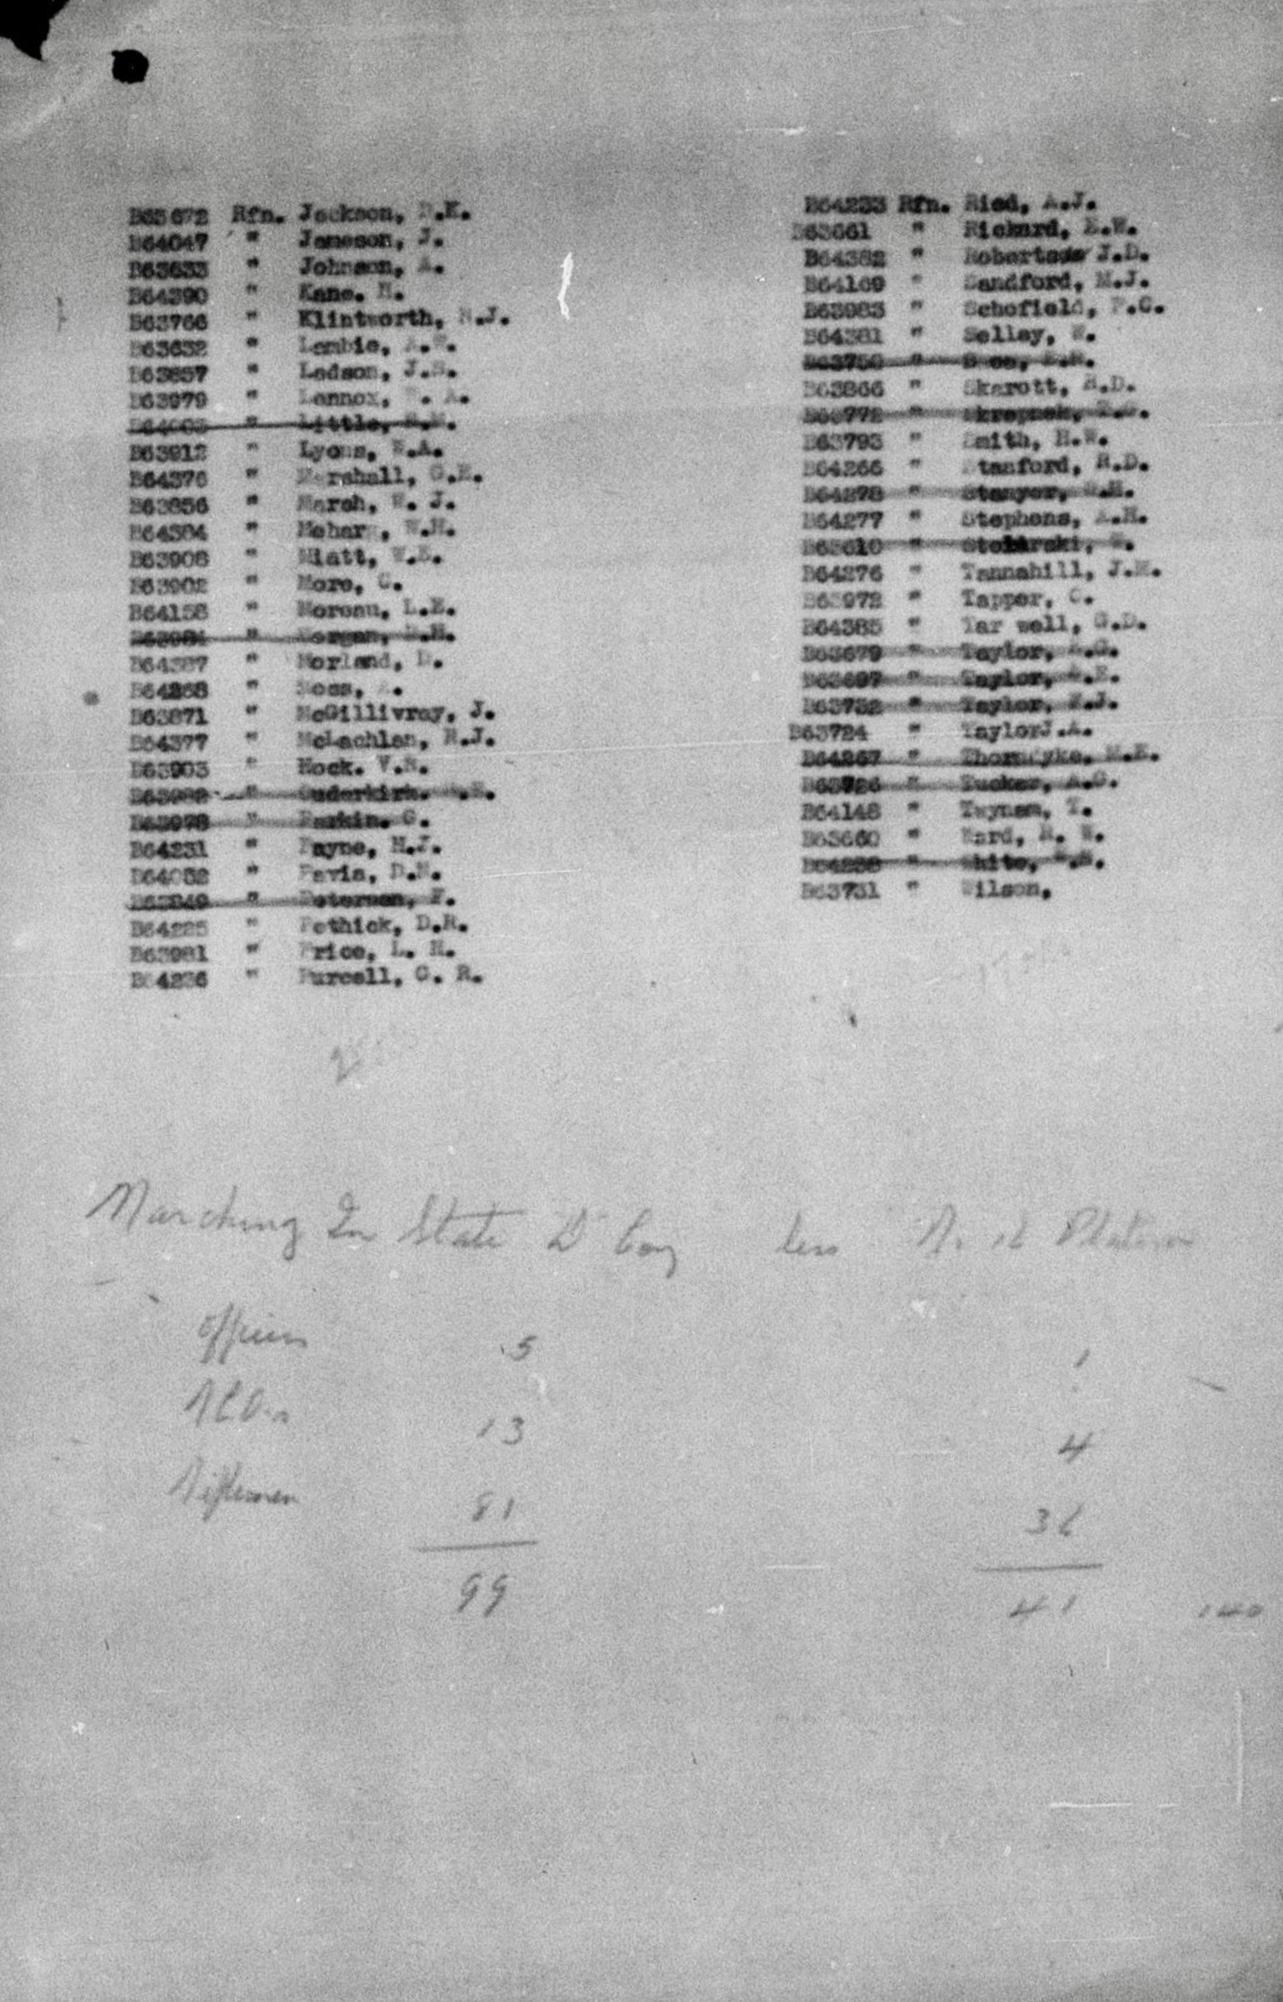 B63672 Rfn. Jackson, D.K.
B64047 " Jameson, J.
B63633 " Johnson, A.
B64390 " Kane. H.
B63766 " Klintworth, N.J.
B63632 " Lambie, A.W.
B63857 " Ladson, J.S.
B63979 " Lennox, A.
" Little, R.M.
B63912 " Lyons, W.A.
B64376 " Marshall, G.E.
B63856 " Marsh, W. J.
B64384 " Mehar, W.H.
B63908 " Miatt, W.E.
B63902 " More, C.
B64158 " Moreau, L.E.
" Morgan, H.
B64387 " Morland, D.
B64268 " Moss,
B63871 " McGillivray, J.
B64377 " McLachlan, R.J.
B63903 " Mock. V.N.
B63982 " Ouderkirk. E.
B63978 " Parkin. G.
B64231 " Payne, H.J.
" Pavia, D.N.
B63849 " Peterman, F.
B64225 " Pethick, D.R.
B63981 " Price, L. H.
B64236 " Purcell, G. R.
B64233 Rfn. Ried, A.J.
B63661 " Rickard, E.W.
B64382 " Robertson J.D.
B64169 " Sandford, M.J.
B63983 " Schofield, F.G.
B64381 " Selley, W.
B63750 "
B63866 " Skarott, H.D.
B63772 " Skrepnek,
B63793 " Smith, H.W.
B64266 " Stanford, R.D.
B64278 " Stanyer, H.
B64277 " Stephens, A.H.
B63610 " Stolarski, W.
B64276 " Tannahill, J.M.
B63972 " Tapper, C.
B64385 " Tar well, G.D.
B63679 " Taylor, A.G.
B63697 " Taylor, A.E.
B63732 " Taylor, J.
B63724 " TaylorJ.A.
B64267 " Thorndyke. M.E.
B63726 " Tucker, A.G.
B64148 " Twynam, T.
B63660 " Ward, R. W.
B64238 " White,
B63731 " Wilson.
Marching In State D Coy less Platoon
Officers 5 1
NCOs 13 4
Riflemen 81 36
99 41 140